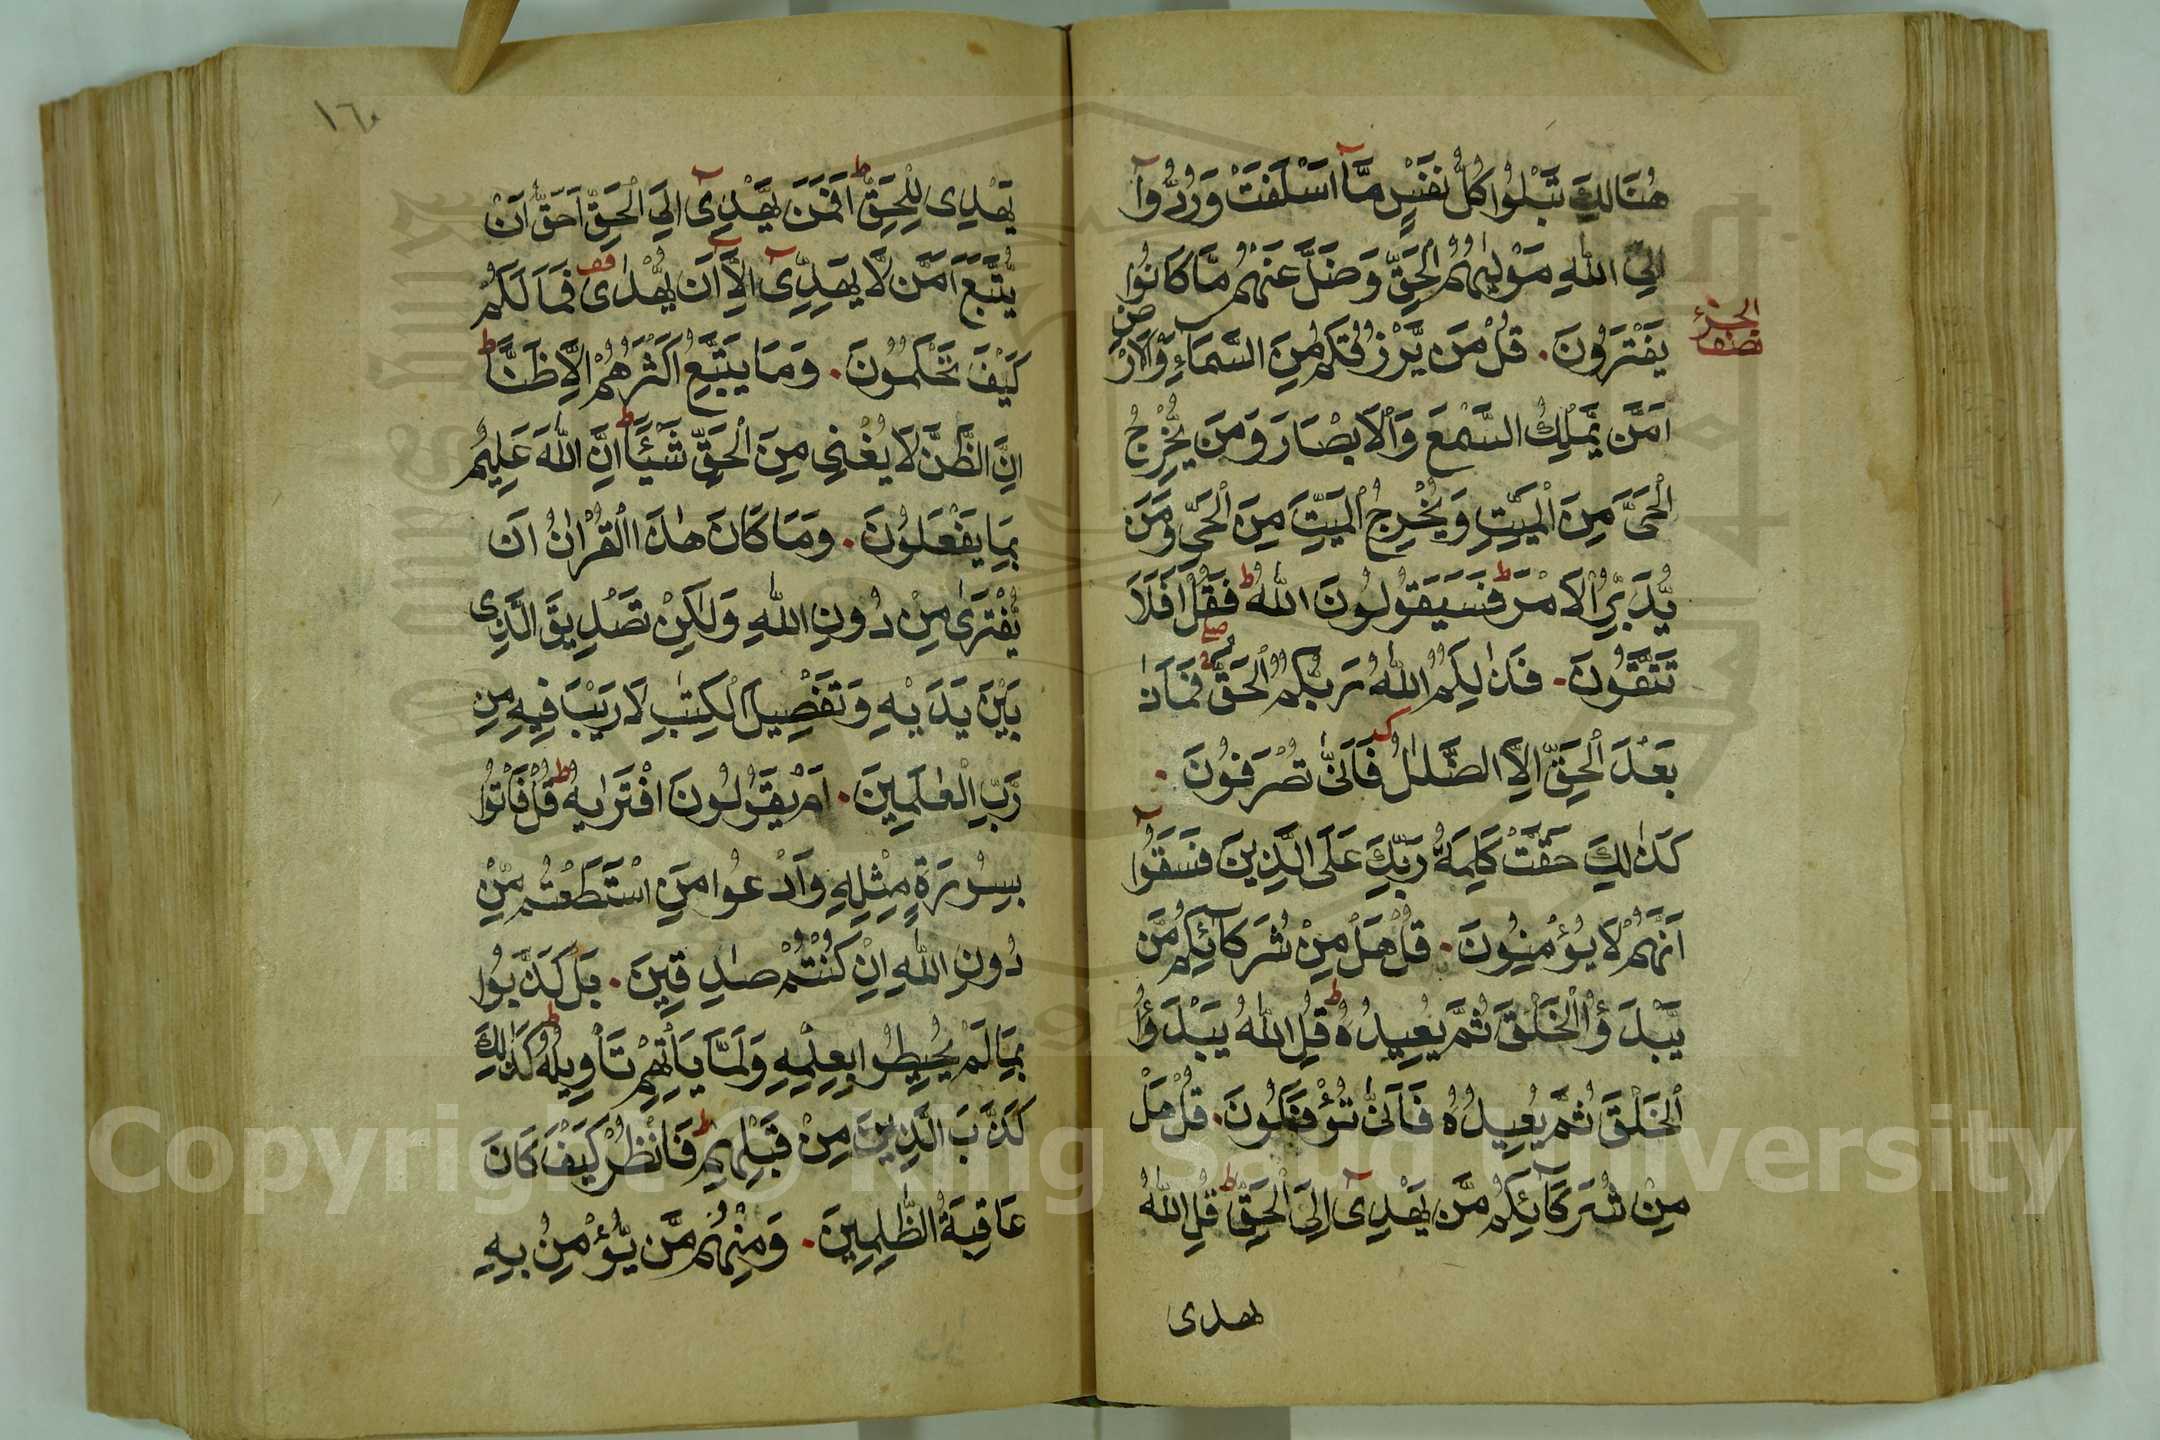 هُنَالِكَ تَبْلُوا كُلُّ نَفْسٍ مَّآ اَسْلَفَتْ وَرُدُّوآ
اِلَى اللّٰهِ مَوْلٰيهُمُ الْحَقِّ وَضَلَّ عَنْهُمْ مَّا كَانُوا
يَفْتَرُونَ. قُلْ مَنْ يَّرْزُقُكُمْ مِنَ السَّمَاءِ وَالْاَرْضِ
نصف الجزء
اَمَّنْ يَّمْلِكُ السَّمْعَ وَالْاَبْصَارَ وَمَنْ يُّخْرِجُ
الْحَىَّ مِنَ الْمَيِّتِ وَيُخْرِجُ الْمَيِّتَ مِنَ الْحَىِّ وَمَنْ
يُّدَبِّرُ الْاَمْرَ ط فَسَيَقُولُونَ اللّٰهُ ط فَقُلْ اَفَلَا
تَتَّقُونَ. فَذٰلِكُمُ اللّٰهُ رَبُّكُمُ الْحَقُّ فَمَاذَا
بَعْدَ الْحَقِّ اِلَّا الضَّلٰلُ فَاَنّٰى تُصْرَفُونَ.
كَذٰلِكَ حَقَّتْ كَلِمَةُ رَبِّكَ عَلَى الَّذِينَ فَسَقُوآ
اَنَّهُمْ لَا يُؤْمِنُونَ. قُلْ هَلْ مِنْ شُرَكَآئِكُمْ مَّنْ
يَّبْدَؤُا الْخَلْقَ ثُمَّ يُعِيدُهُ ط قُلِ اللّٰهُ يَبْدَؤُا
الْخَلْقَ ثُمَّ يُعِيدُهُ فَاَنّٰى تُؤْفَكُونَ. قُلْ هَلْ
مِنْ شُرَكَآئِكُمْ مَّنْ يَهْدِىٓ اِلَى الْحَقِّ ط قُلِ اللّٰهُ
يهدى
١٦٠
يَهْدِى لِلْحَقِّ ط اَفَمَنْ يَهْدِىٓ اِلَى الْحَقِّ اَحَقُّ اَنْ
يُّتَّبَعَ اَمَّنْ لَّا يَهِدِّىٓ اِلَّآ اَنْ يُّهْدٰى قف فَمَا لَكُمْ
كَيْفَ تَحْكُمُونَ. وَمَا يَتَّبِعُ اَكْثَرُهُمْ اِلَّا ظَنًّا ط
اِنَّ الظَّنَّ لَا يُغْنِى مِنَ الْحَقِّ شَيْئًا ط اِنَّ اللّٰهَ عَلِيمٌ
بِمَا يَفْعَلُونَ. وَمَا كَانَ هٰذَا الْقُرْاٰنُ اَنْ
يُّفْتَرٰى مِنْ دُونِ اللّٰهِ وَلٰكِنْ تَصْدِيقَ الَّذِى
بَيْنَ يَدَيْهِ وَتَفْصِيلَ الْكِتٰبِ لَا رَيْبَ فِيهِ مِنْ
رَّبِّ الْعٰلَمِينَ. اَمْ يَقُولُونَ افْتَرٰيهُ ط قُلْ فَاْتُوا
بِسُورَةٍ مِثْلِهِ وَادْعُوا مَنِ اسْتَطَعْتُمْ مِّنْ
دُونِ اللّٰهِ اِنْ كُنْتُمْ صٰدِقِينَ. بَلْ كَذَّبُوا
بِمَا لَمْ يُحِيطُوا بِعِلْمِهِ وَلَمَّا يَاْتِهِمْ تَاْوِيلُهُ ط كَذٰلِكَ
كَذَّبَ الَّذِينَ مِنْ قَبْلِهِمْ ط فَانْظُرْ كَيْفَ كَانَ
عَاقِبَةُ الظّٰلِمِينَ. وَمِنْهُمْ مَّنْ يُّؤْمِنُ بِهِ
Copyright © King Saud University